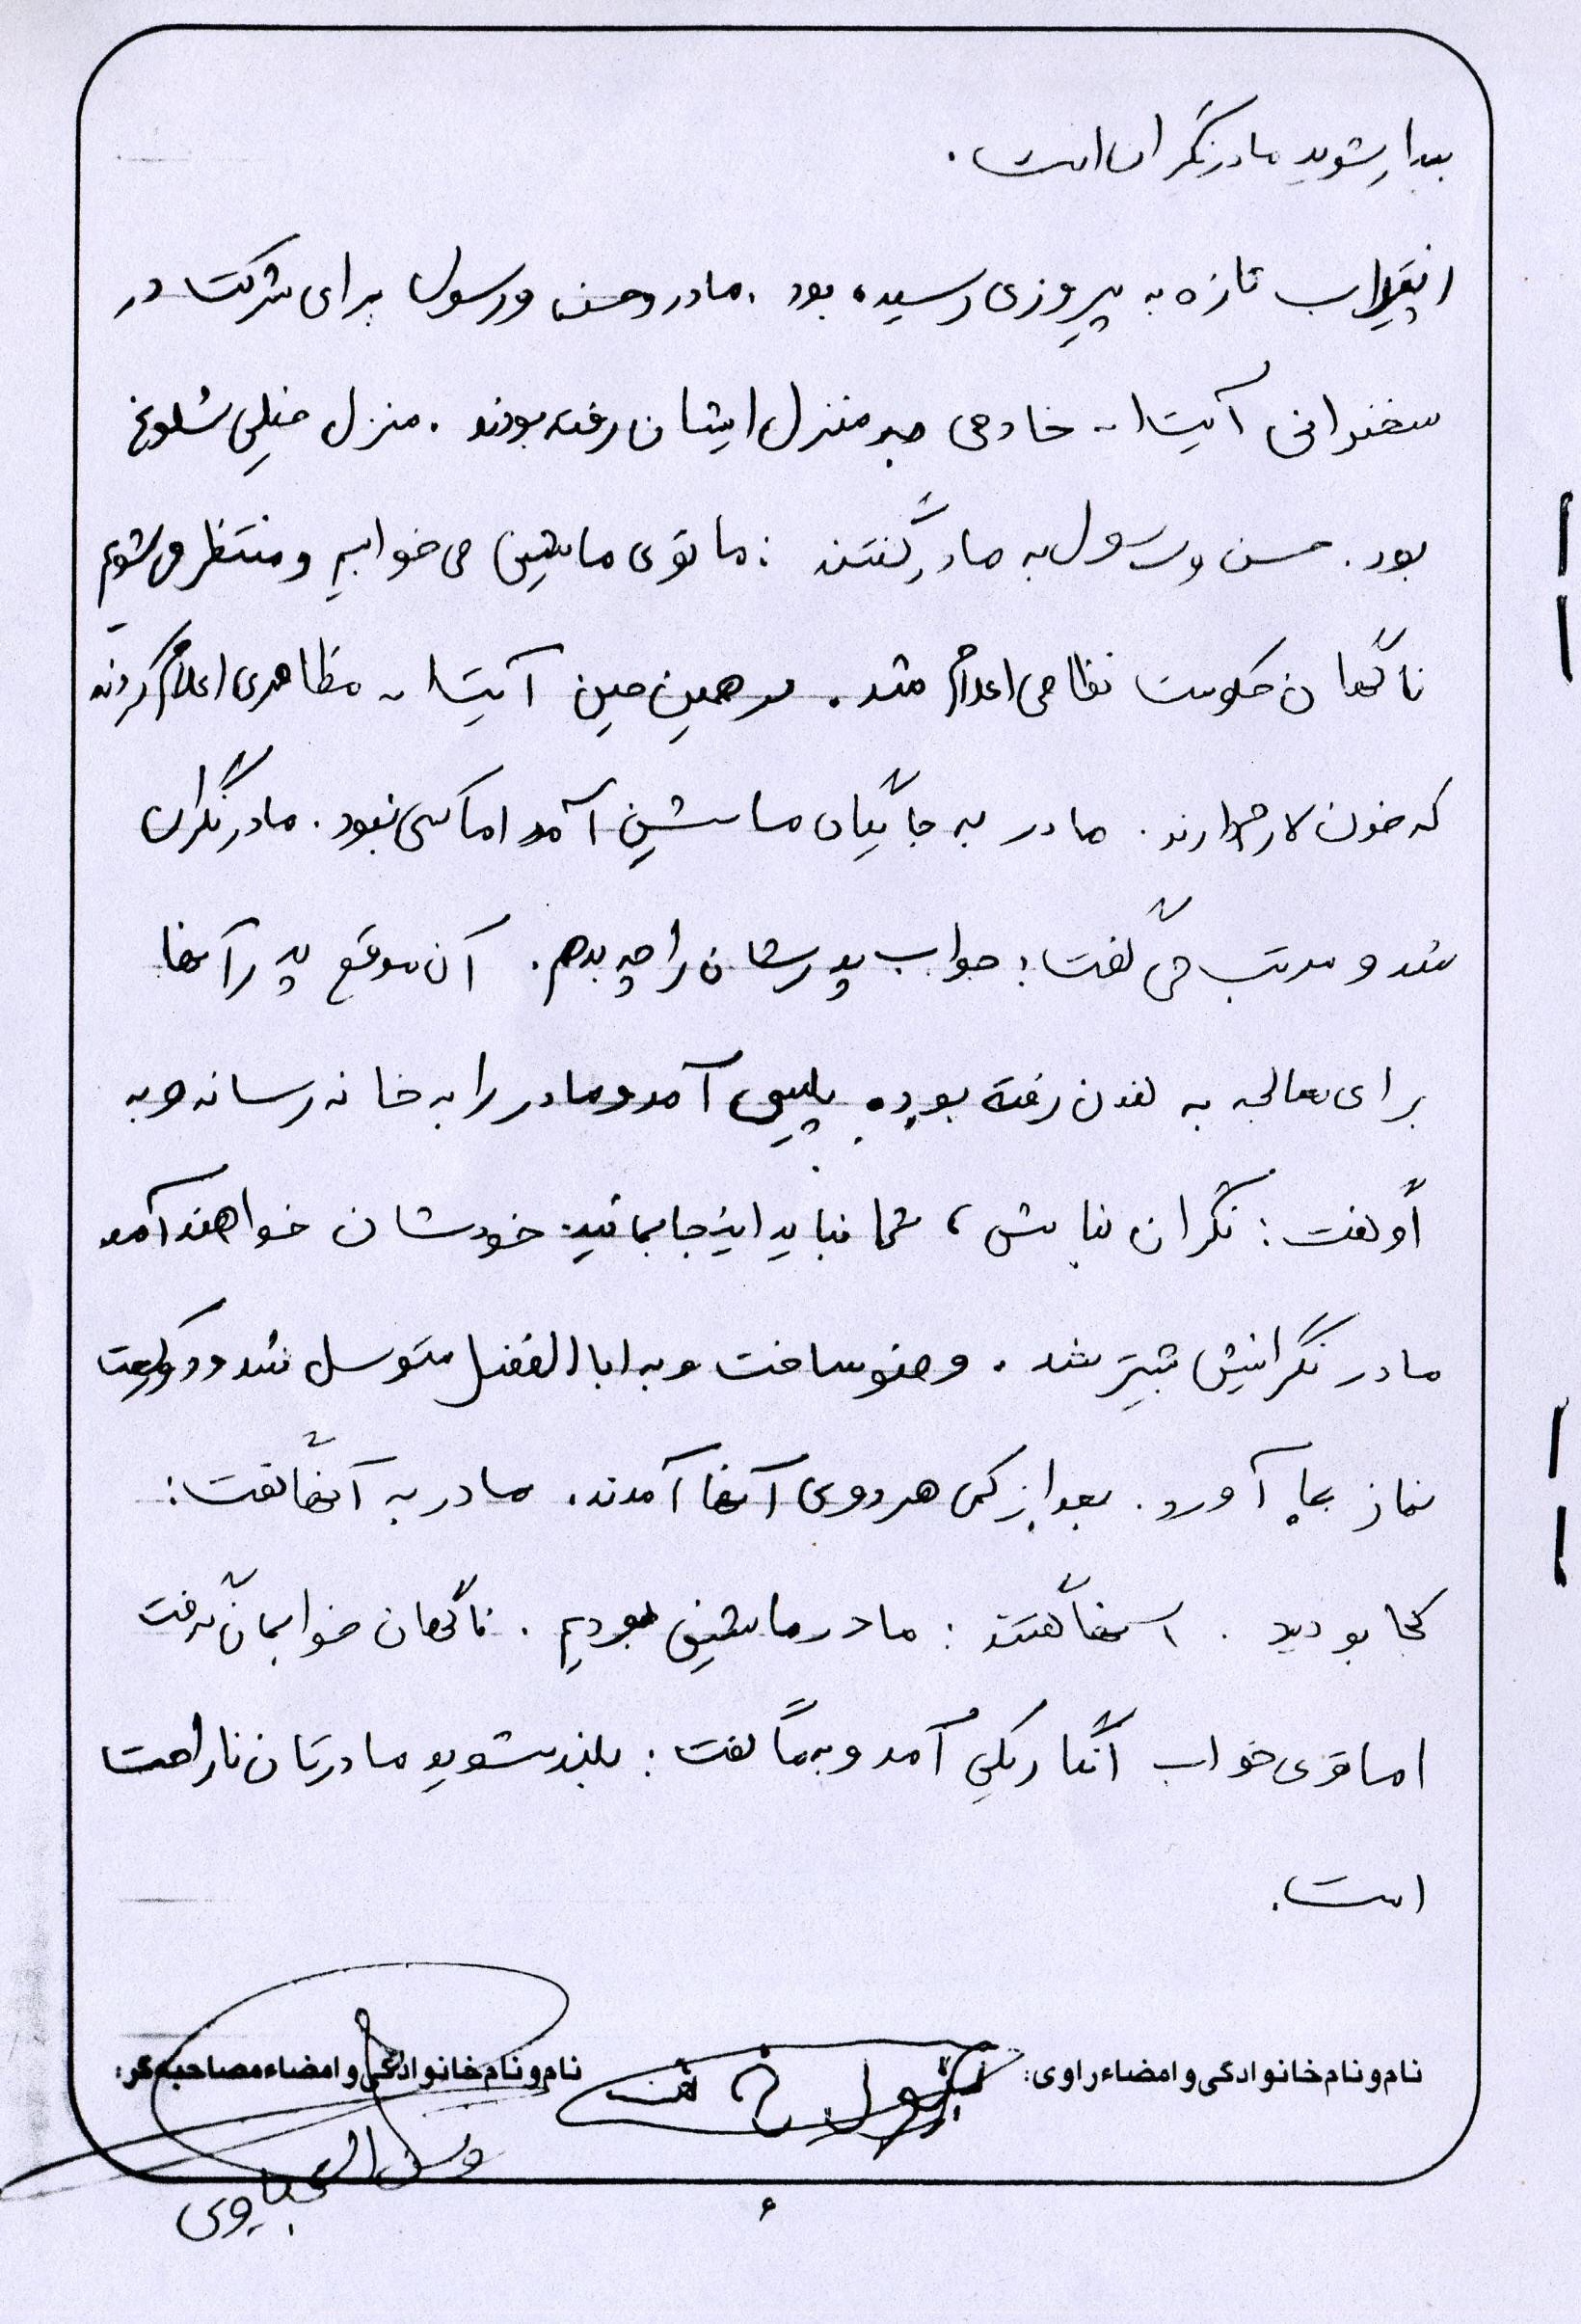 بیدار شوید مادر نگران است.
انقلاب تازه به پیروزی رسیده بود. مادر و حسن و رسول برای شرکت در
سخنرانی آیت‌ا... خادمی به منزل ایشان رفته بودند. منزل خیلی شلوغ
بود. حسن و رسول به مادر گفتند: ما توی ماشین می‌خوابیم و منتظر می‌شویم
ناگهان حکومت نظامی اعلام شد. در همین حین آیت‌ا... مظاهری اعلام کردند
که خون لازم دارند. مادر به جایگاه ماشین آمد اما کسی نبود. مادر نگران
شد و مرتب می‌گفت: جواب پدرشان را چه بدهم. آن موقع پدر آنها
برای معالجه به لندن رفته بود. پلیس آمد و مادر را به خانه رساند و به
او گفت: نگران نباش، شما نباید اینجا بمانید. خودشان خواهند آمد
مادر نگرانیش بیشتر شد. وضو ساخت و به اباالفضل متوسل شد و دو رکعت
نماز بجا آورد. بعد از کمی هر دوی آنها آمدند. مادر به آنها گفت:
کجا بودید. آنها گفتند: ما در ماشین بودیم. ناگهان خوابمان گرفت
اما توی خواب انگار یکی آمد و به ما گفت: بلند شوید مادرتان ناراحت
است.
نام و نام خانوادگی و امضاء راوی: نام و نام خانوادگی و امضاء مصاحبه‌گر:
۶